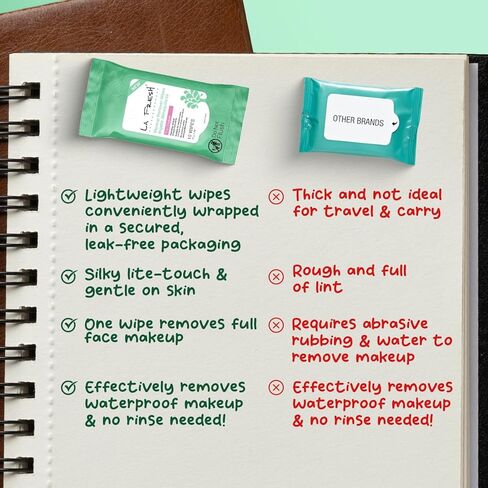 LA FRESH
OTHER BRANDS
Lightweight wipes
conveniently wrapped
in a secured,
leak-free packaging
Thick and not ideal
for travel & carry
Silky lite-touch &
gentle on skin
Rough and full
of lint
One wipe removes full
face makeup
Requires abrasive
rubbing & water to
remove makeup
Effectively removes
waterproof makeup
& no rinse needed!
Effectively removes
waterproof makeup
& no rinse needed!